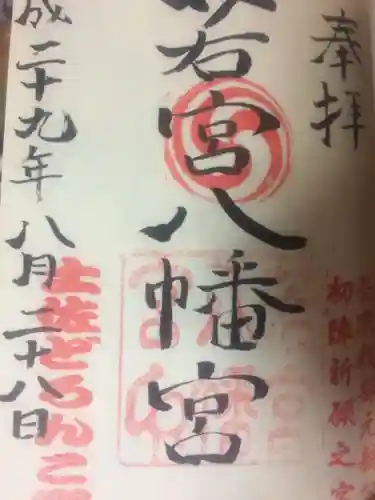 奉拝
若宮八幡宮
初陣祈願之宮
成二十九年八月二十八日
土佐どろんこ